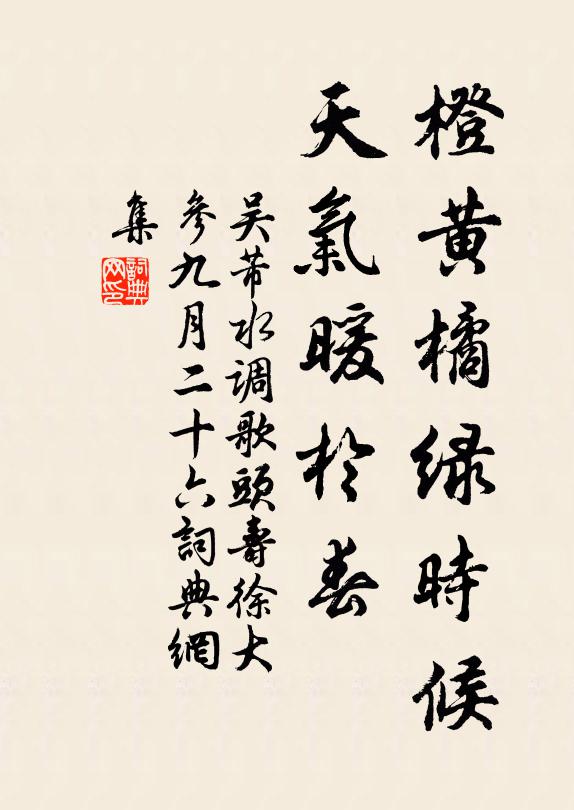 橙黄橘緑時候
天氣暖於春
吴芾水调歌頭壽徐大
參九月二十六詞典網
集
詞典
网印